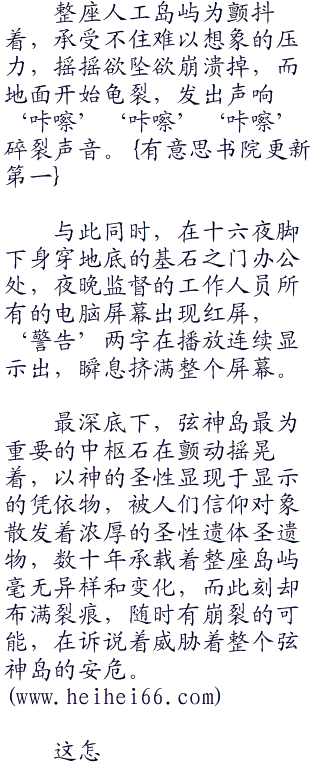 整座人工岛屿为颤抖
着，承受不住难以想象的压
力，摇摇欲坠欲崩溃掉，而
地面开始龟裂，发出声响
‘咔嚓’‘咔嚓’‘咔嚓’
碎裂声音。{有意思书院更新
第一}
与此同时，在十六夜脚
下身穿地底的基石之门办公
处，夜晚监督的工作人员所
有的电脑屏幕出现红屏，
‘警告’两字在播放连续显
示出，瞬息挤满整个屏幕。
最深底下，弦神岛最为
重要的中枢石在颤动摇晃
着，以神的圣性显现于显示
的凭依物，被人们信仰对象
散发着浓厚的圣性遗体圣遗
物，数十年承载着整座岛屿
毫无异样和变化，而此刻却
布满裂痕，随时有崩裂的可
能，在诉说着威胁着整个弦
神岛的安危。
(www.heihei66.com)
这怎